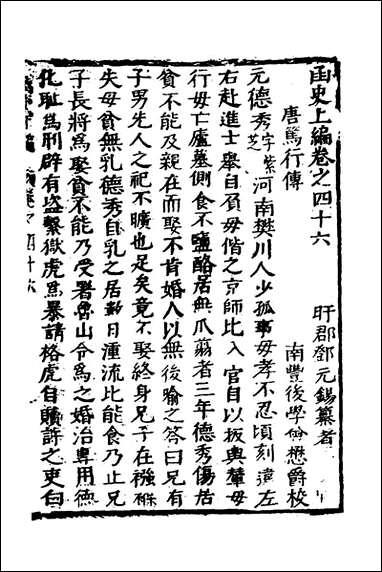 函史上編卷之四十六
盱郡鄧元錫纂著
唐篤行傳
南豐後學曾懋爵校
元德秀字紫芝河南樊川人少孤事母孝不忍頃刻違左
右赴進士舉自負母偕之京師比入官自以板輿輦母
行母亡廬墓側食不鹽酪居無爪翦者三年德秀傷居
貧不能及親在而娶不肯婚人以無後喻之答曰兄有
子男先人之祀不曠也足矣竟不娶終身兄子在襁褓
失母貧無乳德秀自乳之居數日湩流比能食乃止兄
子長將爲娶貧不能乃受署魯山令爲之婚治專用德
化恥爲刑辟有盜繫獄虎爲暴請格虎自贖許之吏白